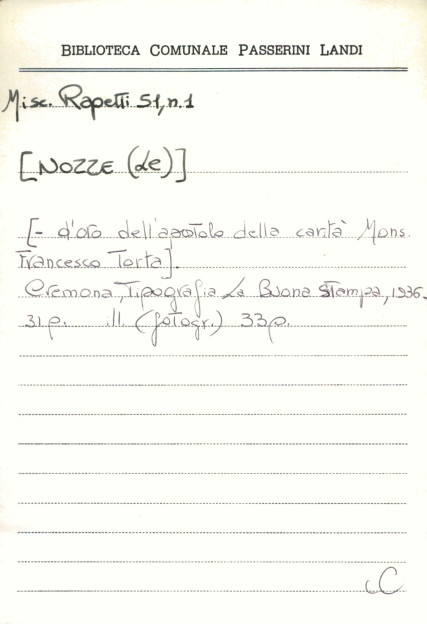 BIBLIOTECA COMUNALE PASSERINI LANDI
Misc. Rapetti 51, n.1
[NOZZE (Le)]
[- d'oro dell'apostolo della carità Mons.
Francesco Torta].
Cremona, Tipografia La Buona Stampa, 1936.
31 p. ill. (fotogr.) 33 p.
C